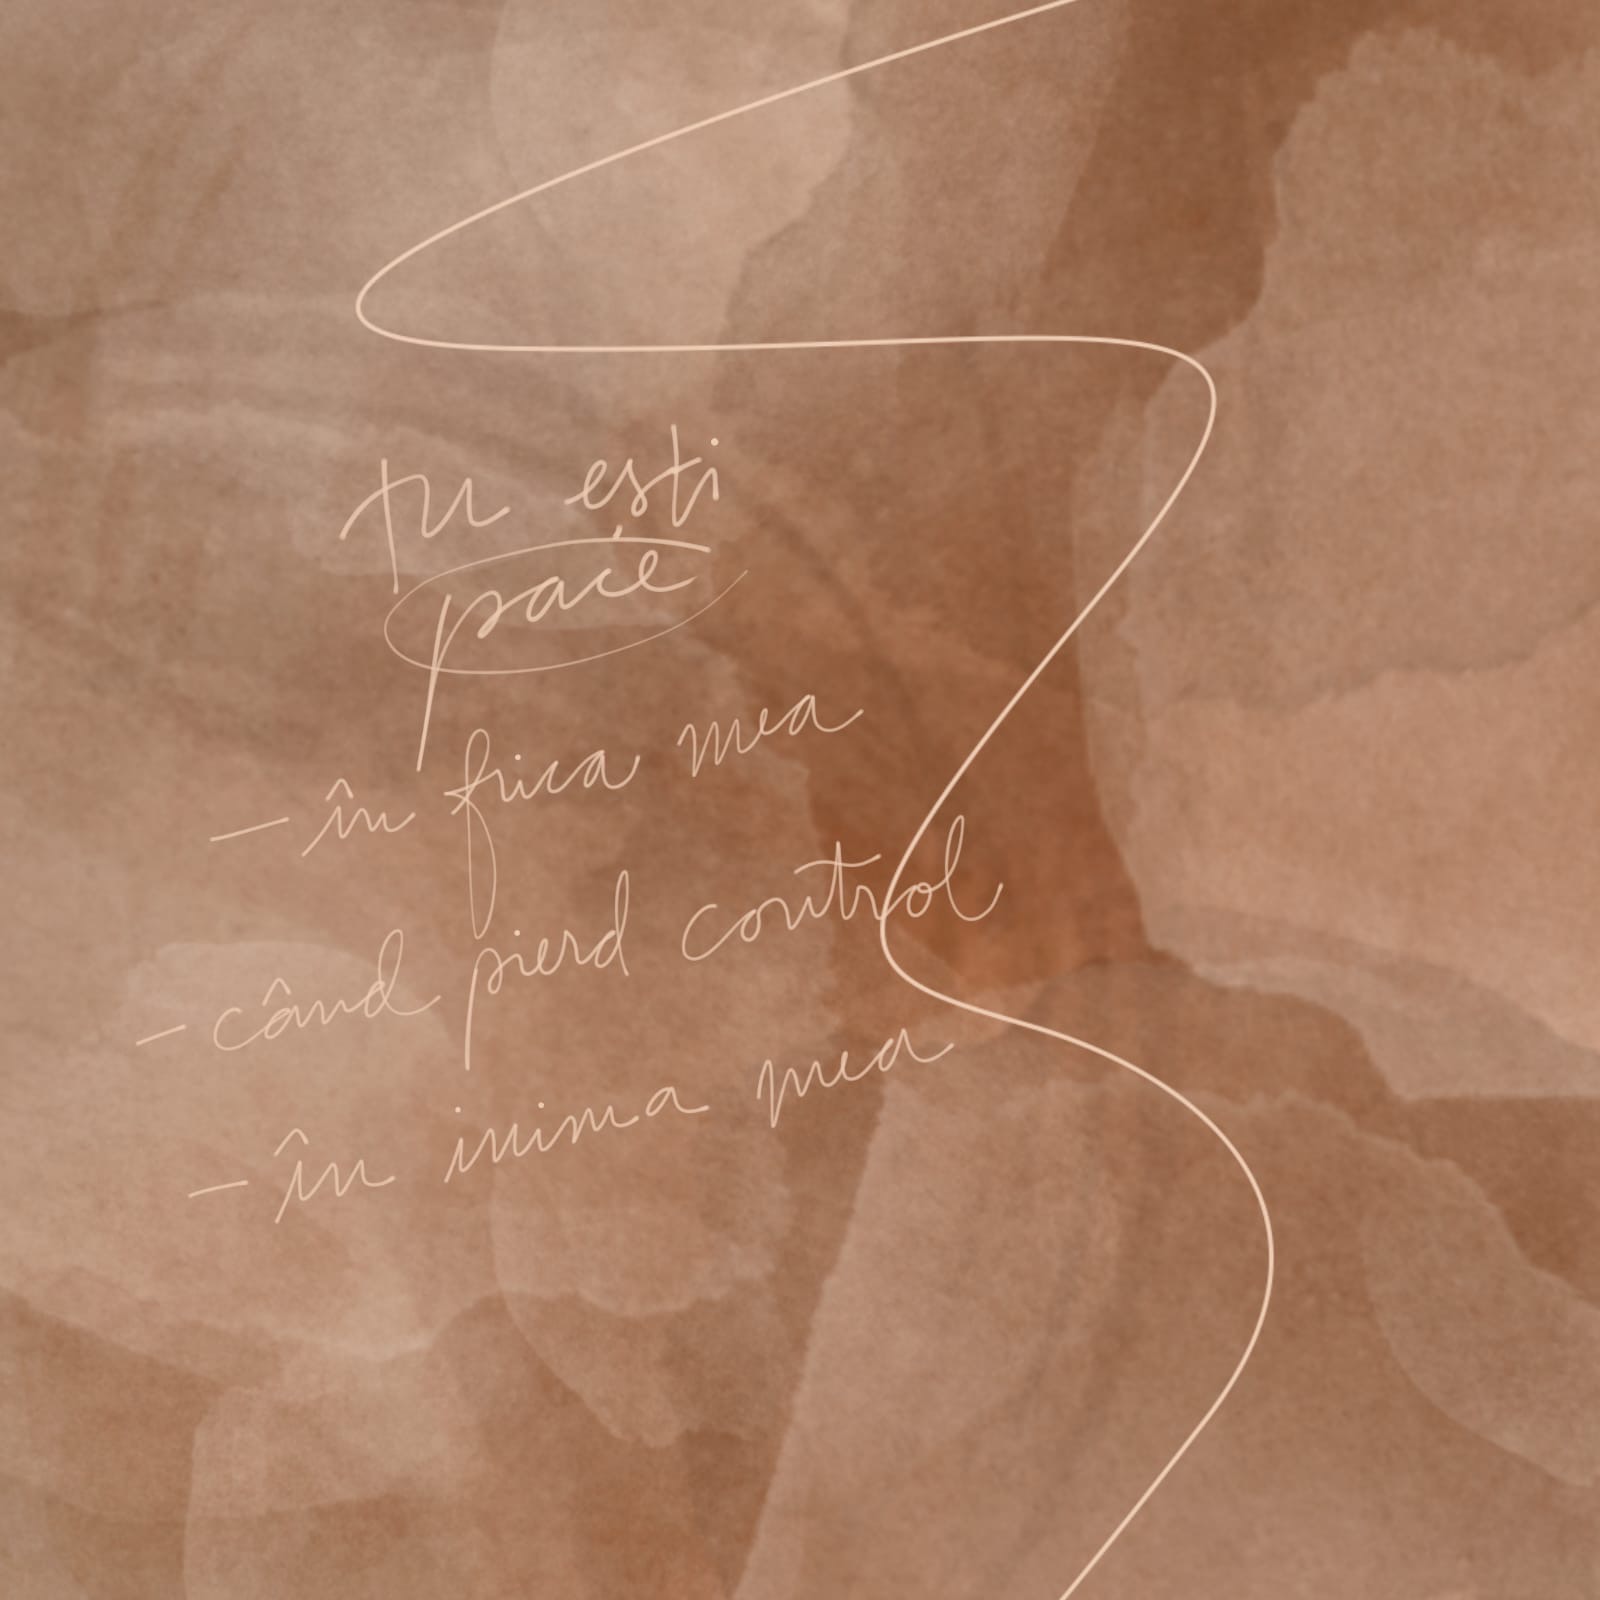 tu ești
pace
- în frica mea
- când pierd control
- în inima mea